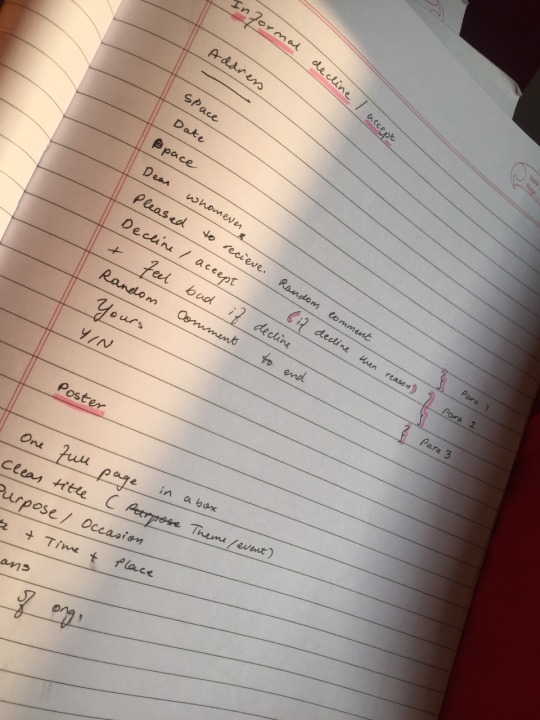 Informal decline / accept
Address
space
Date
space
Dear whomever
Pleased to recieve. Random comment
Decline / accept (if decline then reason)
+ feel bad if decline
Random comments to end
Yours
Y/N
Para 1
Para 2
Para 3
Poster
One full page in a box
Clear title (Purpose Theme/event)
Purpose / Occasion
+ Time + Place
of org.